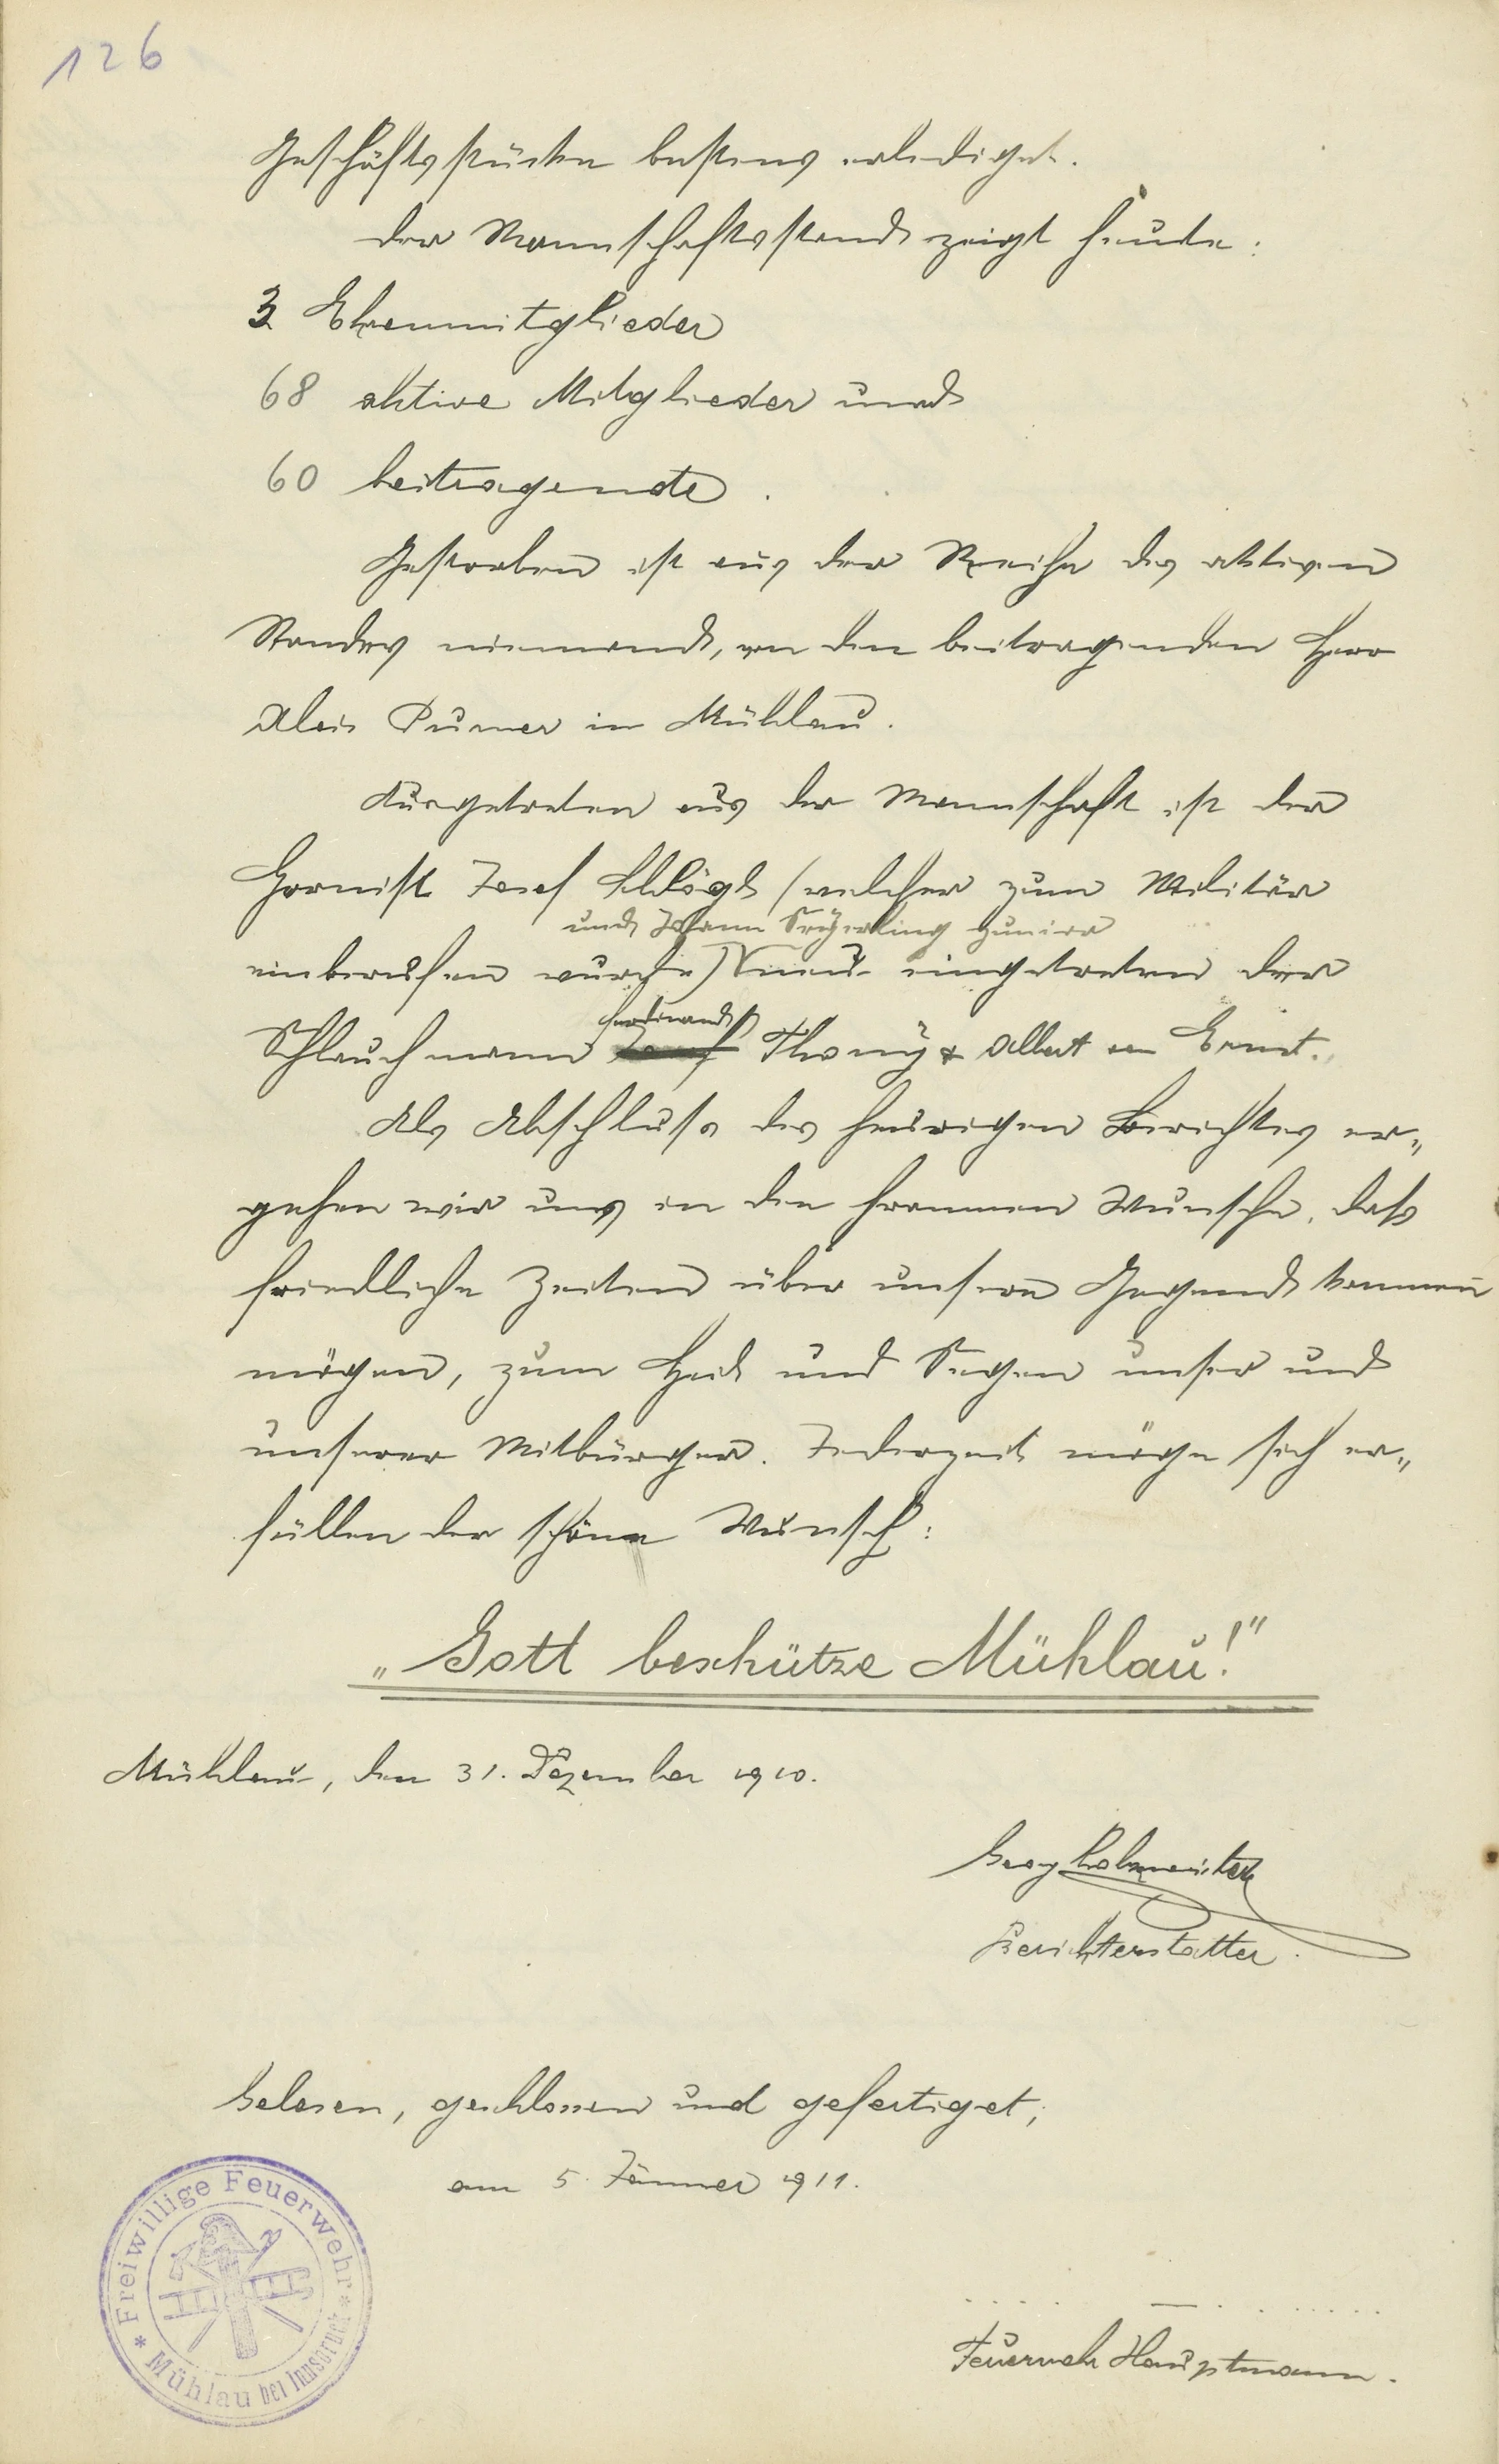 126
Geschäftsstücke bestens erlediget.
Der Mannschaftsstand zeigt heute:
3 Ehrenmitglieder
68 aktive Mitglieder und
60 beitragende.
Gestorben ist aus der Reihe des aktiven
Standes niemand, von den beitragenden Herr
Alois in Mühlau.
Ausgetreten aus der Mannschaft ist der
Hornist Josef (welcher zum Militär
und Johann junior
einberufen wurde) neu eingetreten der
Ferdinand
Schlauchmann Thöny & Albert Ernst.
Als Abschluss des heurigen Berichtes er„
gehen wir uns in den frommen Wunsche, daß
friedliche Zeiten über unsere Gegend kommen
mögen, zum Heil und Segen unser und
unserer Mitbürger. Jederzeit möge sich er„
füllen der schöne Wunsch:
„Gott beschütze Mühlau!"
Mühlau, den 31. Dezember 1910.
Georg
Berichterstatter.
Gelesen, geschlossen und gefertiget,
am 5. Jänner 1911.
* Freiwillige Feuerwehr *
Mühlau bei Innsbruck
Feuerwehr Hauptmann.